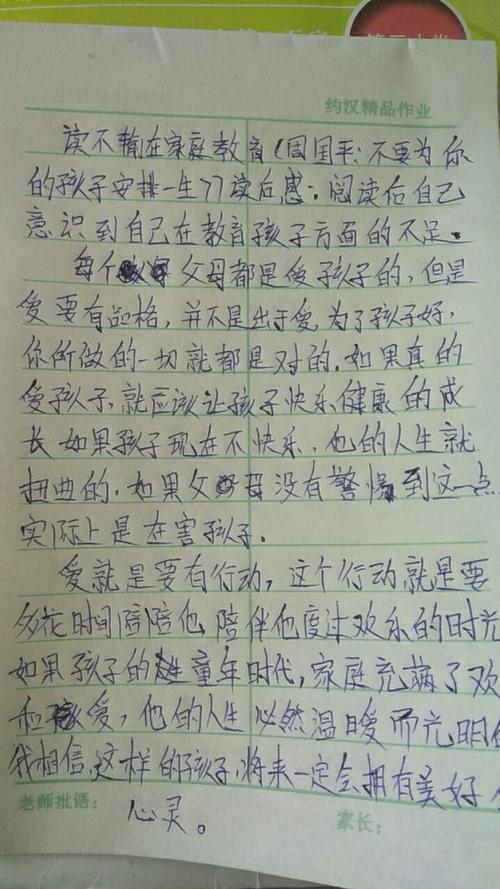 约汉精品作业
读不输在家庭教育(周国平:不要为你
的孩子安排一生》)读后感:阅读后自己
意识到自己在教育孩子方面的不足。
每个父母都是爱孩子的,但是
爱要有品格,并不是出于爱,为了孩子好,
你所做的一切就都是对的.如果真的
爱孩子,就应该让孩子快乐健康的成
长 如果孩子现在不快乐,他的人生就
扭曲的.如果父母没有警惕到这一点
实际上是在害孩子.
爱就是要有行动,这个行动就是要
多花时间陪陪他,陪伴他度过欢乐的时光
如果孩子的童年时代,家庭充满了欢
和爱,他的人生必然温暖而光明
我相信,这样的孩子,将来一定会拥有美好
老师批语:
心灵。
家长: